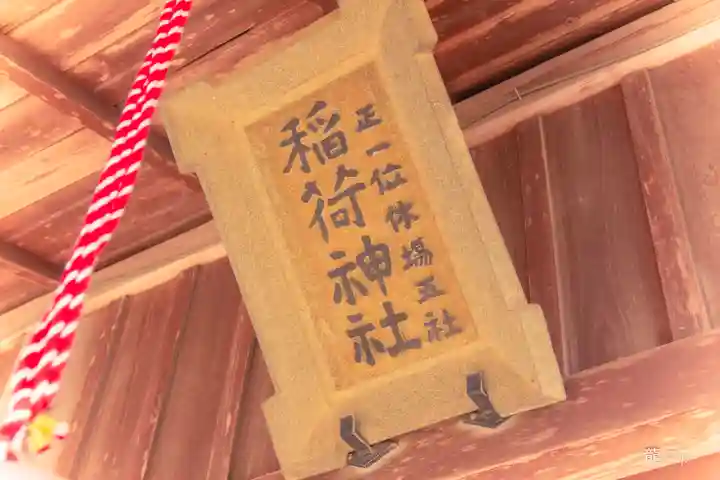 正一位休場五社
稲荷神社